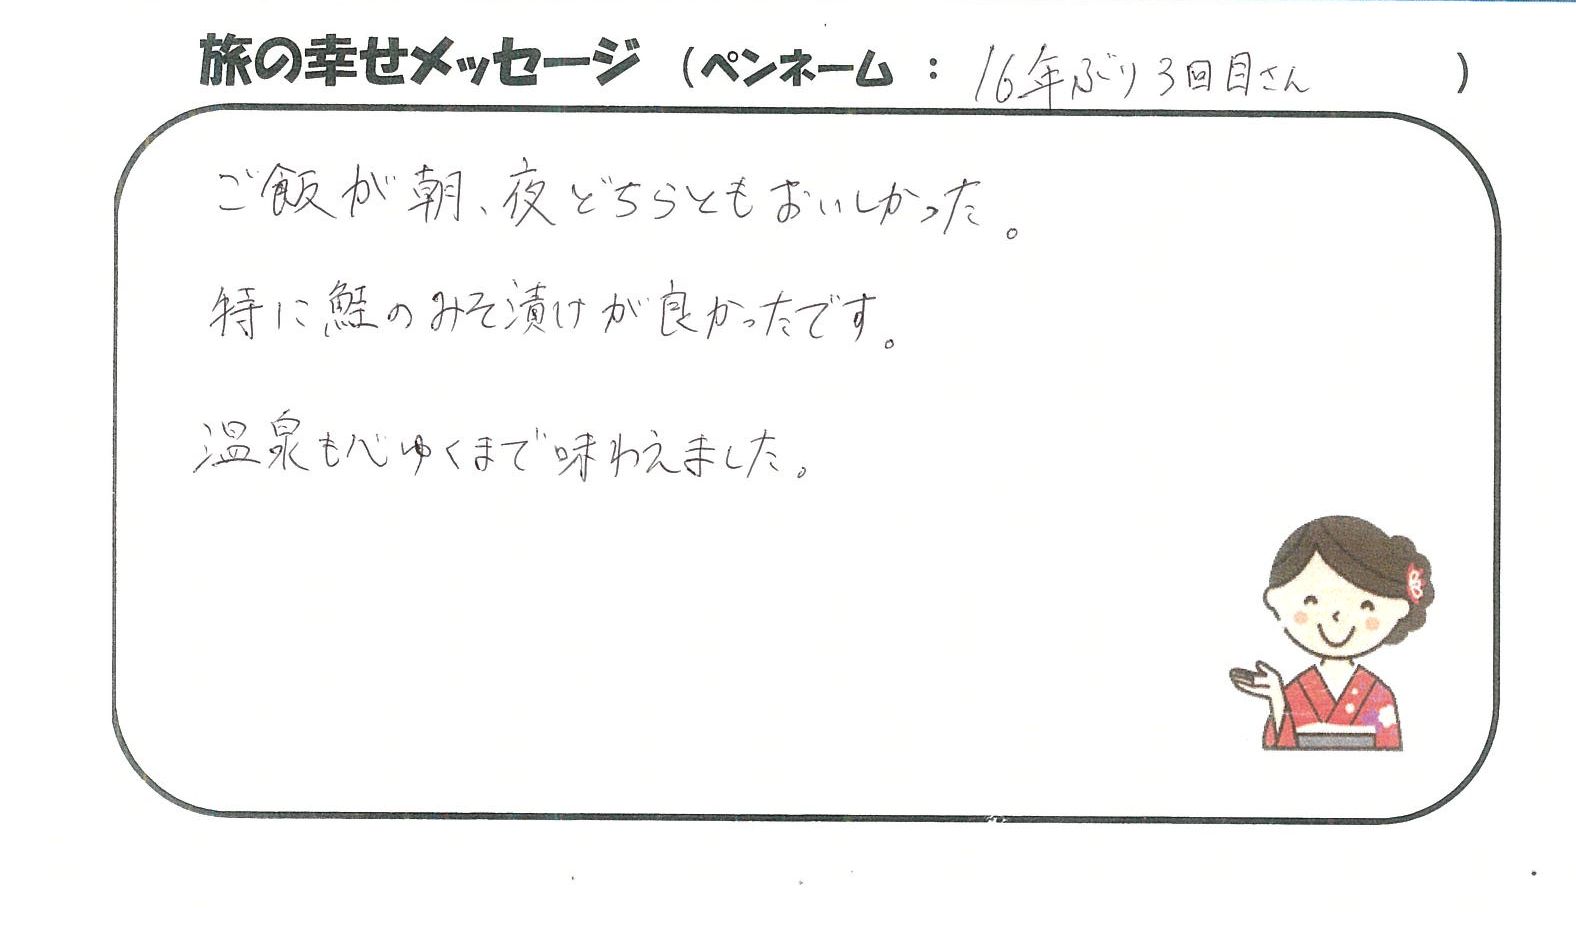 旅の幸せメッセージ (ペンネーム : 16年ぶり3回目さん )
ご飯が朝、夜どちらともおいしかった。
特に鮭のみそ漬けが良かったです。
温泉も心ゆくまで味わえました。